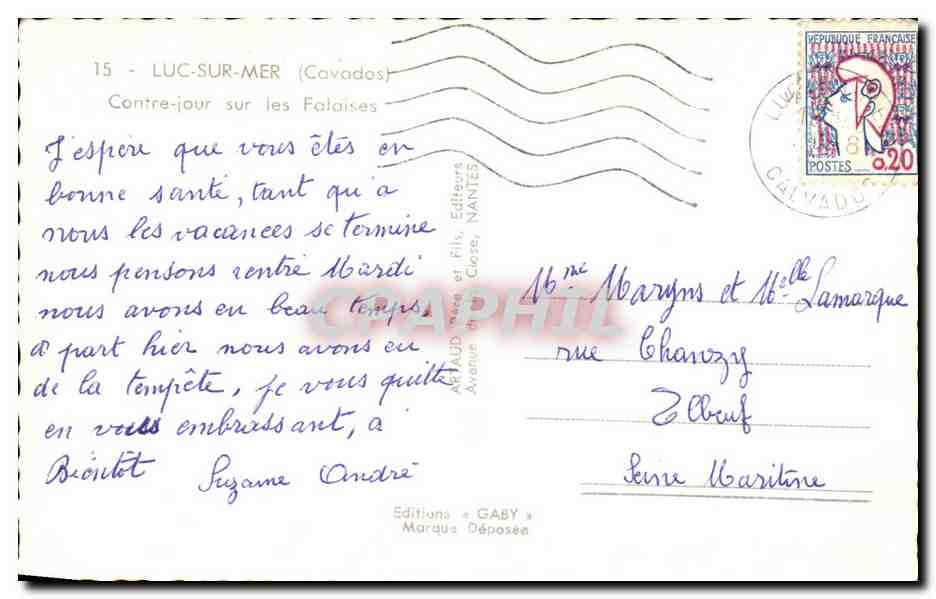 15 - LUC-SUR-MER (Cavados)
Contre-jour sur les Falaises
J'espère que vous êtes en
bonne santé, tant qu'a
nous les vacances se termine
nous pensons rentré Mardi
nous avons eu beau temps,
a part hier nous avons eu
de la tempête, je vous quitte
en vous embrassant, à
Bientôt Suzanne André
ARTAUD Père et Fils, Editeurs
Avenue de la Close, NANTES
REPUBLIQUE FRANCAISE
POSTES 0,20
LUC
CALVADOS
Mme Maryns et Melle Lamarque
rue Chanzy
Elbeuf
Seine Maritine
Editions « GABY »
Marque Déposée
CPAPHIL